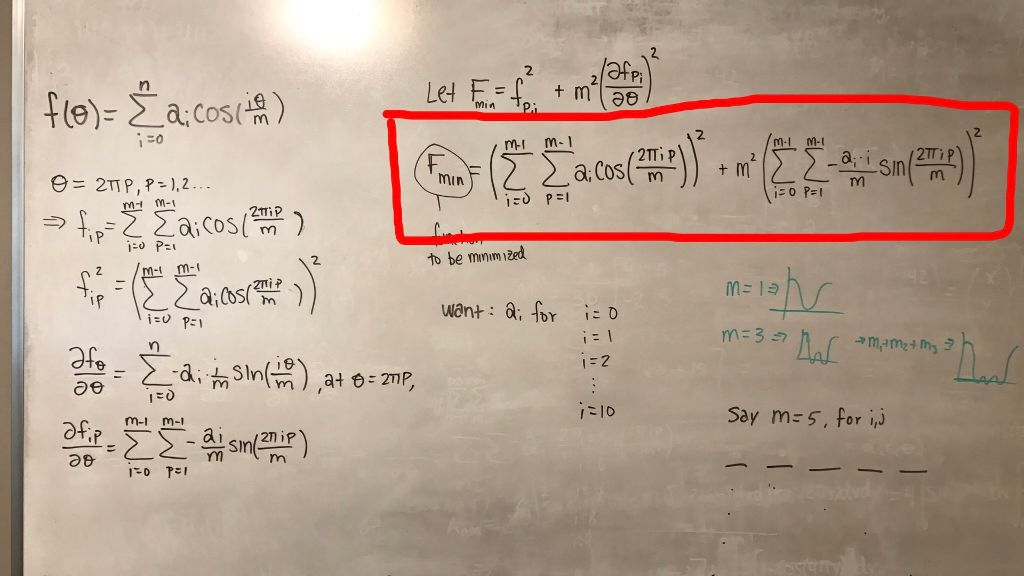 f(θ) = ∑_{i=0}^{n} a_i cos(iθ/m)
θ = 2πP, P = 1,2...
⇒ f_{ip} = ∑_{i=0}^{m-1} ∑_{P=1}^{m-1} a_i cos(2πiP/m)
f_{ip}^2 = (∑_{i=0}^{m-1} ∑_{P=1}^{m-1} a_i cos(2πiP/m))^2
∂f_θ/∂θ = ∑_{i=0}^{n} -a_i · i/m sin(iθ/m), at θ = 2πP,
∂f_{ip}/∂θ = ∑_{i=0}^{m-1} ∑_{P=1}^{m-1} - ai/m sin(2πiP/m)
Let F_{min} = f_{P,i}^2 + m^2(∂f_{Pi}/∂θ)^2
F_{min} = (∑_{i=0}^{m-1} ∑_{P=1}^{m-1} a_i cos(2πiP/m))^2 + m^2(∑_{i=0}^{m-1} ∑_{P=1}^{m-1} - a_i·i/m sin(2πiP/m))^2
function
to be minimized
want: a_i for i=0
i=1
i=2
⋮
i=10
m=1⇒
m=3⇒ →m_1+m_2+m_3⇒
Say m=5, for i,j